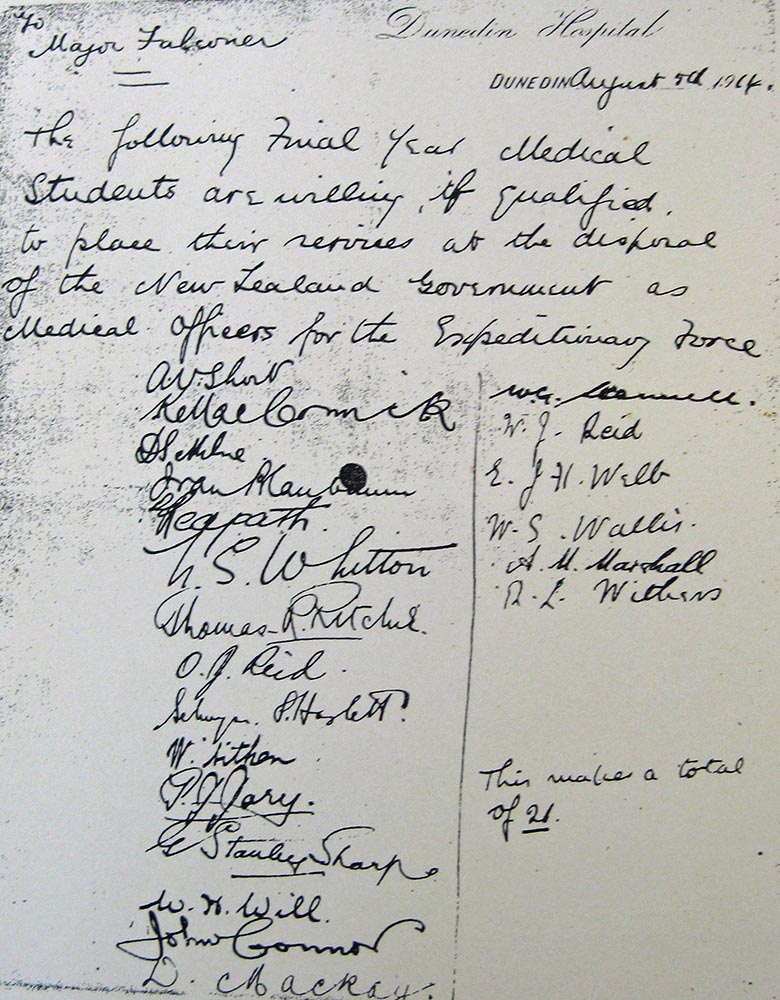 To
Major Falconer
Dunedin Hospital
DUNEDIN August 5th 1914.
The following Final Year Medical
Students are willing, if qualified,
to place their services at the disposal
of the New Zealand Government as
Medical Officers for the Expeditionary Force
A V Short
K MacCormick
D S Milne
Hegpath.
N. S. Whitton
Thomas R. Ritchie.
O. J. Reid.
Selwyn. S. Hazlett.
W. Aitken
P. J. Jory.
G Stanley Sharp
W. H. Will.
John Connor
D. Mackay.
W. G.
W. J. Reid
E. J. H. Webb
W. S. Wallis.
A. M. Marshall
R. L. Withers
This makes a total
of 21.